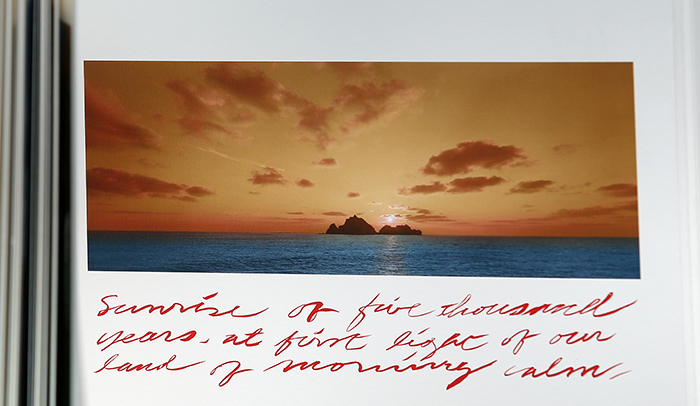 Sunrise of five thousand
years, at first light of our
land of morning calm,